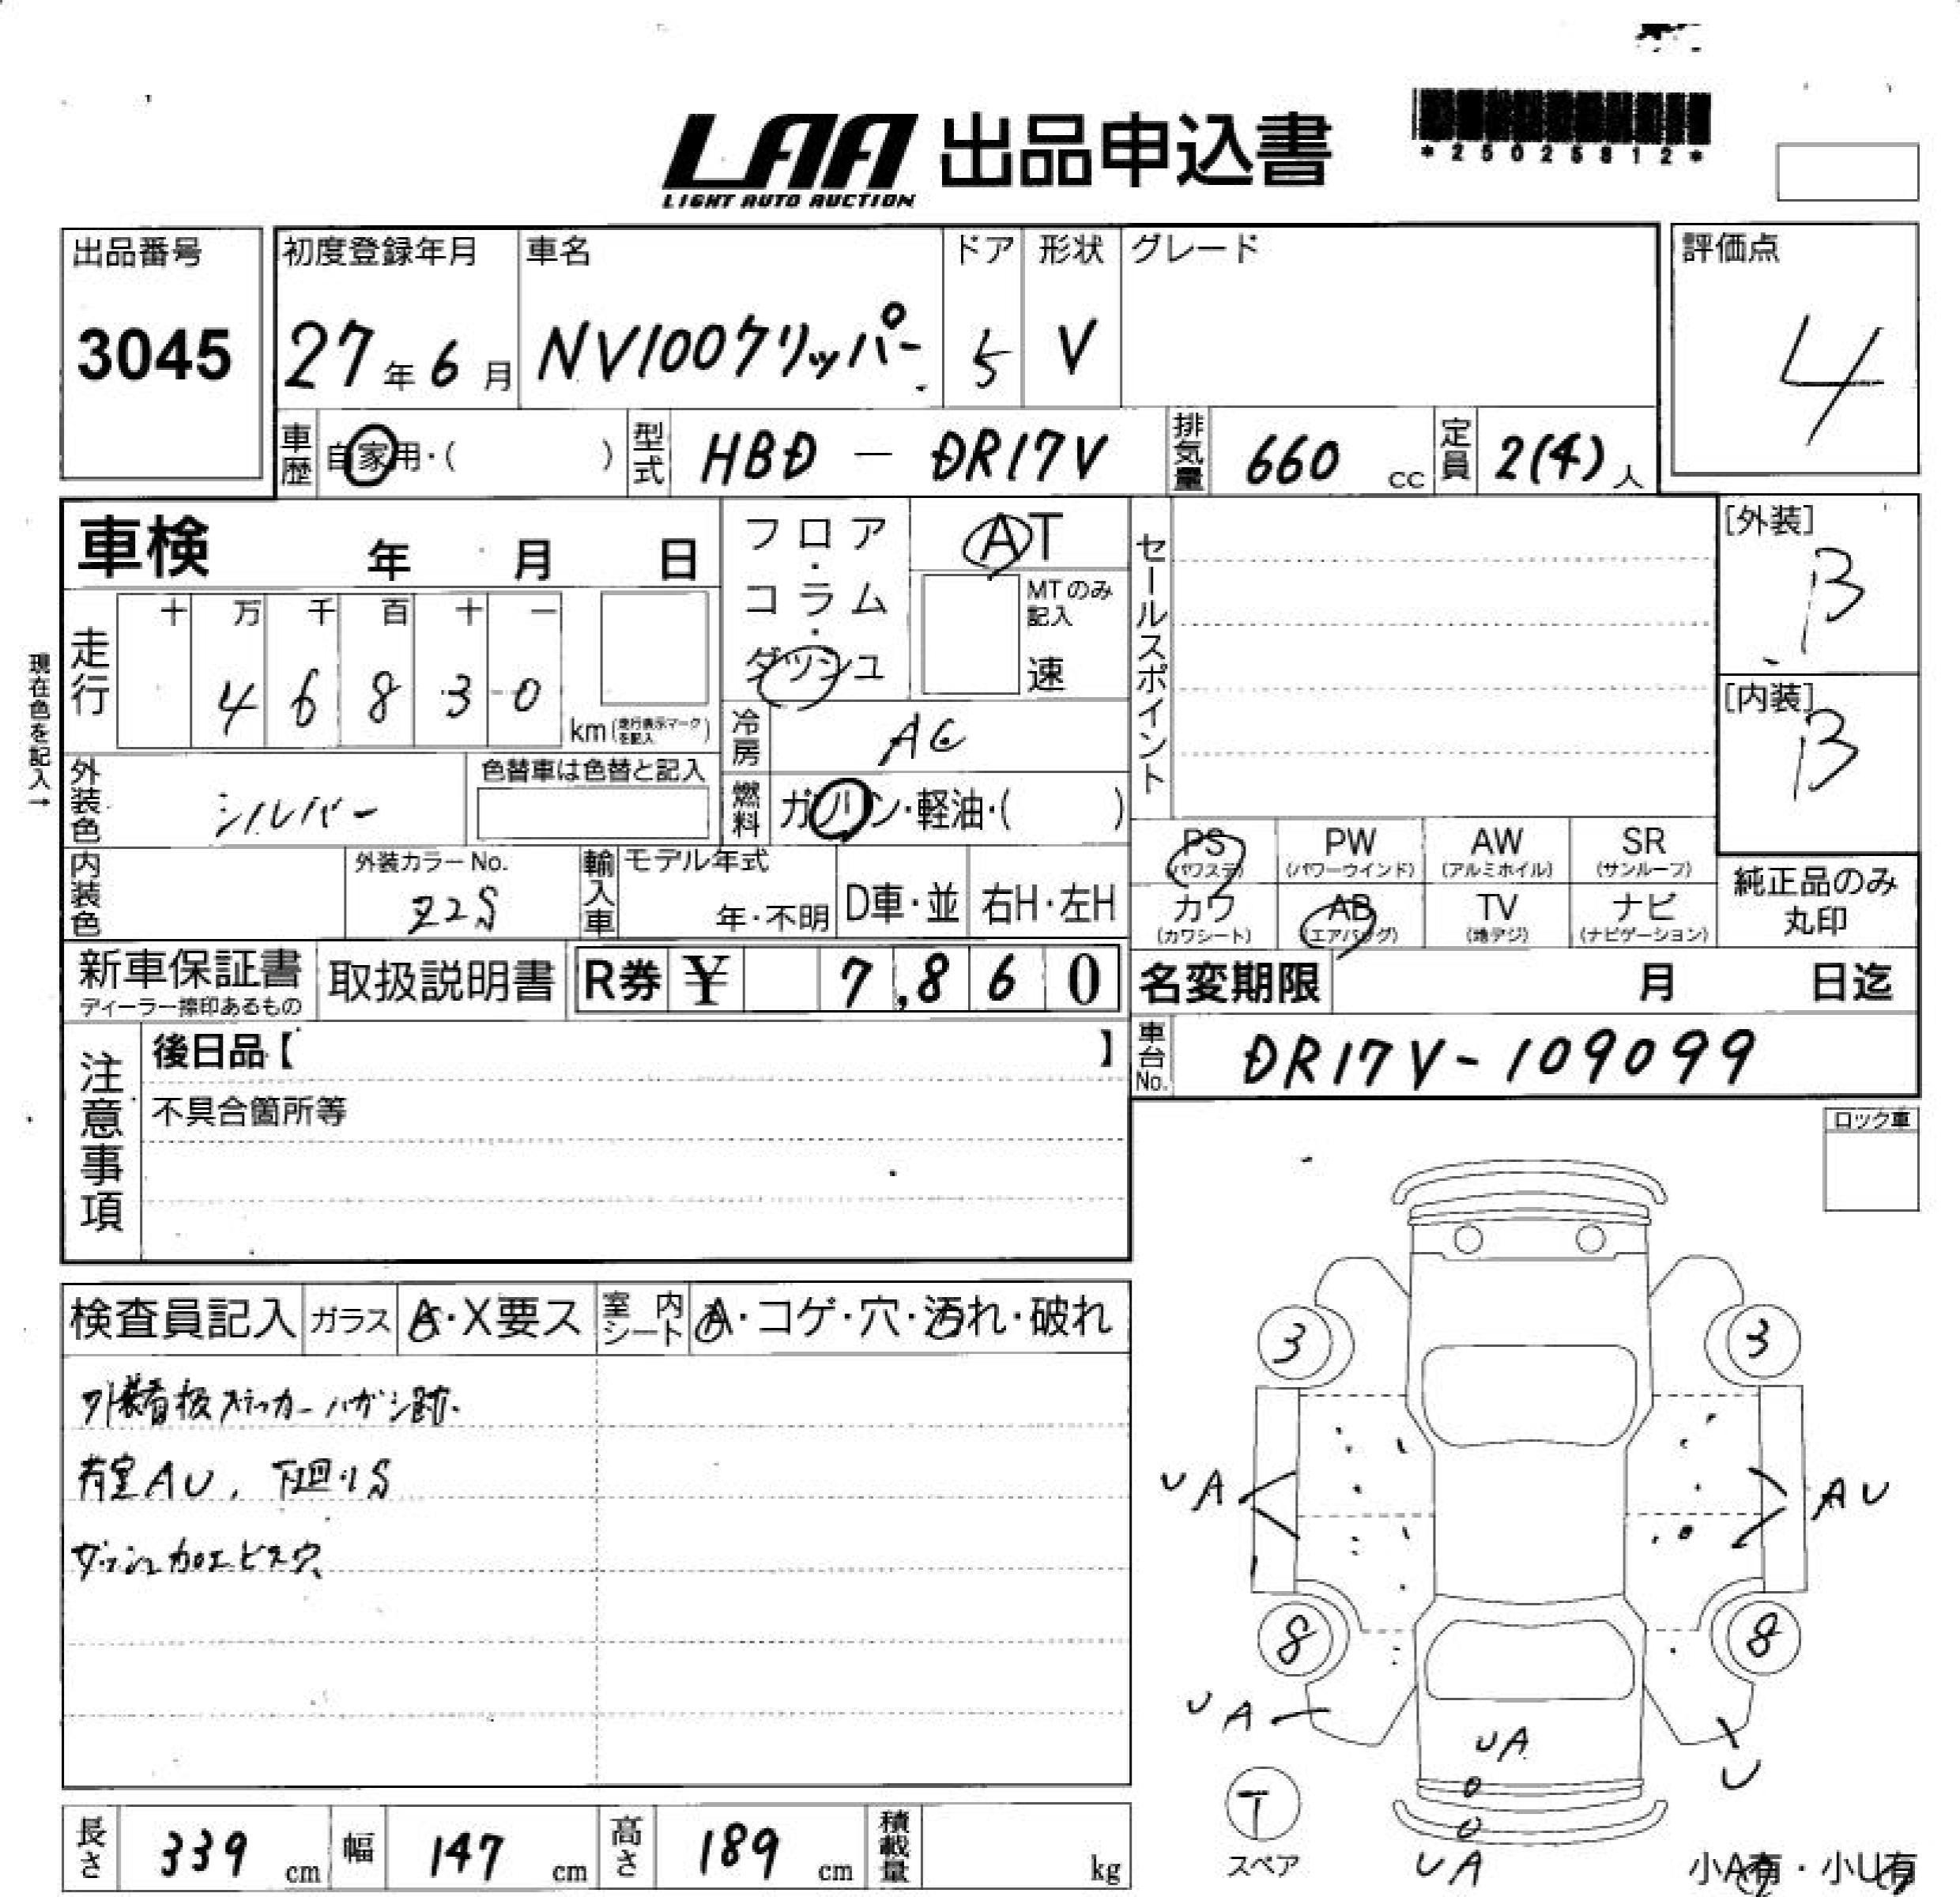 LAA 出品申込書
LIGHT AUTO AUCTION
*25025812*
出品番号
3045
初度登録年月
27年6月
車名
NV100クリッパー
ドア
5
形状
V
グレード
評価点
4
車歴 自家用・( )
型式 HBD - DR17V
排気量 660 cc
定員 2(4)人
車検 年 月 日
現在色を記入→
走行
十 万 千 百 十 一
4 6 8 3 0
km (走行表示マークを記入)
フロア・コラム・ダッシュ
AT
MTのみ記入
速
冷房 AC
燃料 ガソリン・軽油・( )
外装色 シルバー
色替車は色替と記入
内装色
外装カラーNo.
Z2S
輸入車
モデル年式
年・不明
D車・並
右H・左H
セールスポイント
[外装]
B
[内装]
B
PS (パワステ)
PW (パワーウインド)
AW (アルミホイル)
SR (サンルーフ)
カワ (カワシート)
AB (エアバッグ)
TV (地デジ)
ナビ (ナビゲーション)
純正品のみ
丸印
新車保証書
ディーラー捺印あるもの
取扱説明書
R券 ¥ 7,860
名変期限 月 日迄
車台No. DR17V-109099
注意事項
後日品【 】
不具合箇所等
ロック車
検査員記入
ガラス A・X要ス
室内シート A・コゲ・穴・汚れ・破れ
外装看板ステッカーハガシ跡.
荷室AU, 下廻りS
ダッシュ加工ビス穴
3 3
UA AU
8 8
UA
UA
U
T
スペア
UA
小A有・小U有
長さ 339 cm
幅 147 cm
高さ 189 cm
積載量 kg